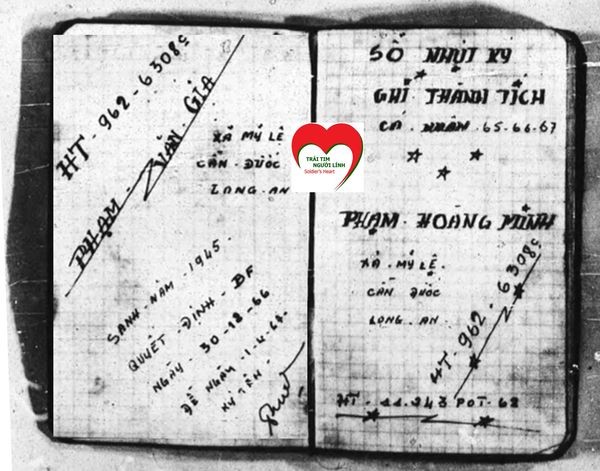 HT - 962 - 6308c
PHẠM - XUÂN GIA
XÃ MỸ LỆ
CẦN ĐƯỚC
LONG AN
SANH - NĂM - 1945 -
QUYẾT - ĐỊNH - DF
NGÀY - 30-12-66
ĐẾ NGÀY - 1-4-67-
KÝ TÊN -
TRÁI TIM
NGƯỜI LÍNH
Soldier's Heart
SỔ NHỰT KÝ
GHI THÀNH TÍCH
CÁ NHÂN 65-66-67
PHẠM - HOÀNG MINH
XÃ MỸ LỆ -
CẦN ĐƯỚC
LONG AN -
HT - 962 - 6308c
HT - 11.243 POT-68